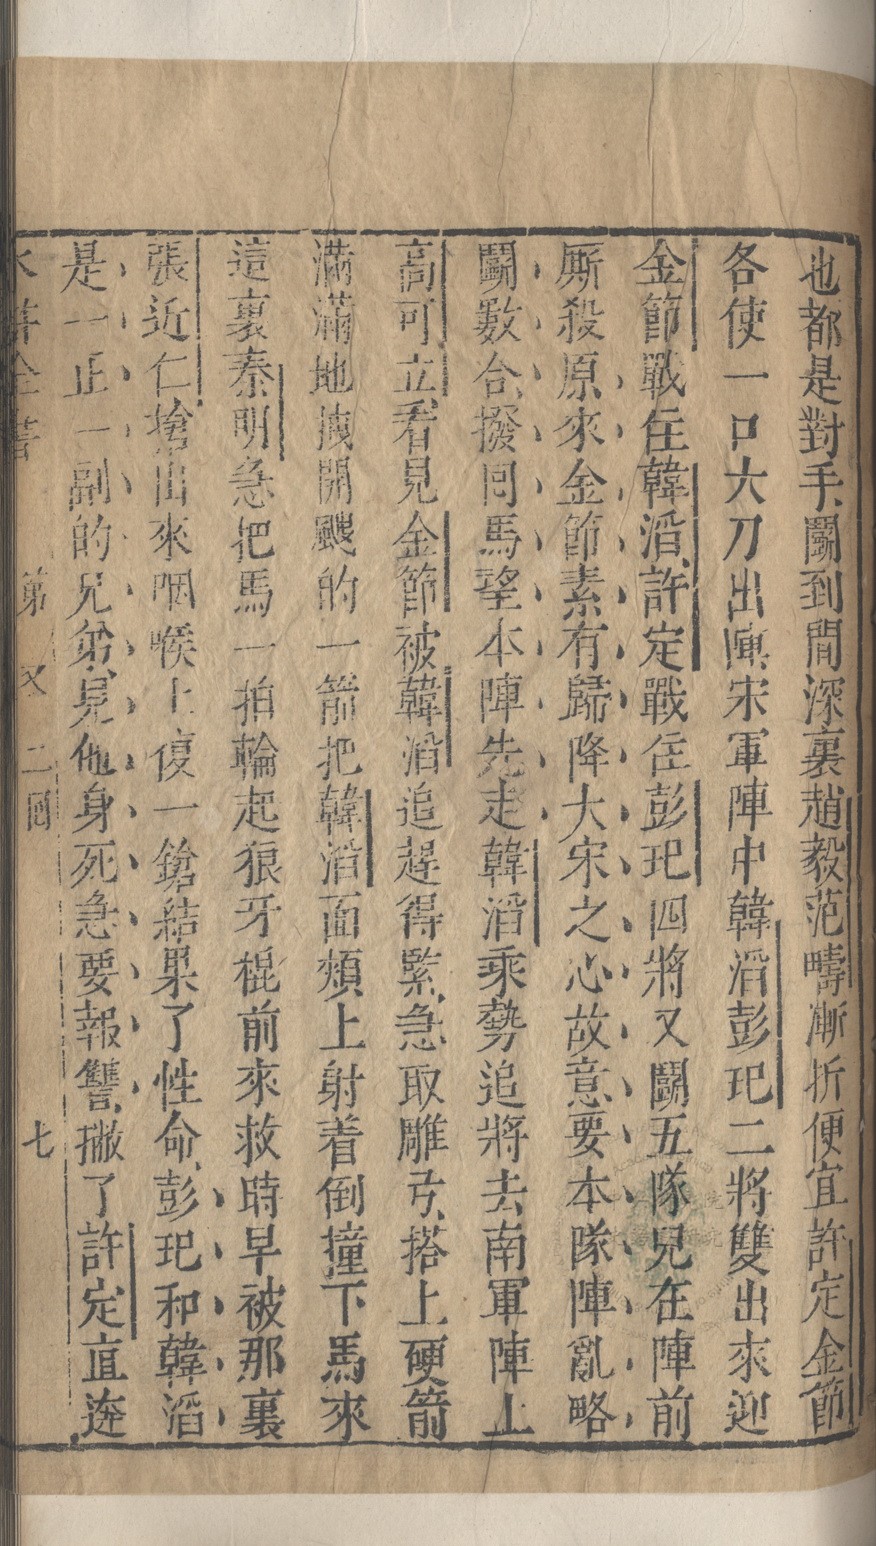 也都是對手鬭到間深裏趙毅范疇漸折便宜許定金節
各使一口大刀出陣宋軍陣中韓滔彭玘二將雙出來迎
金節戰住韓滔許定戰住彭玘四將又鬭五隊兒在陣前
厮殺原來金節素有歸降大宋之心故意要本隊陣亂略
鬭數合撥回馬望本陣先走韓滔乘勢追將去南軍陣上
高可立看見金節被韓滔追趕得緊急取雕弓搭上硬箭
滿滿地拽開颼的一箭把韓滔面頰上射着倒撞下馬來
這裏秦明急把馬一拍輪起狼牙棍前來救時早被那裏
張近仁搶出來咽喉上復一鎗結果了性命彭玘和韓滔
是一正一副的兄弟見他身死急要報讐撇了許定直逩
水滸全書 第 二回 七